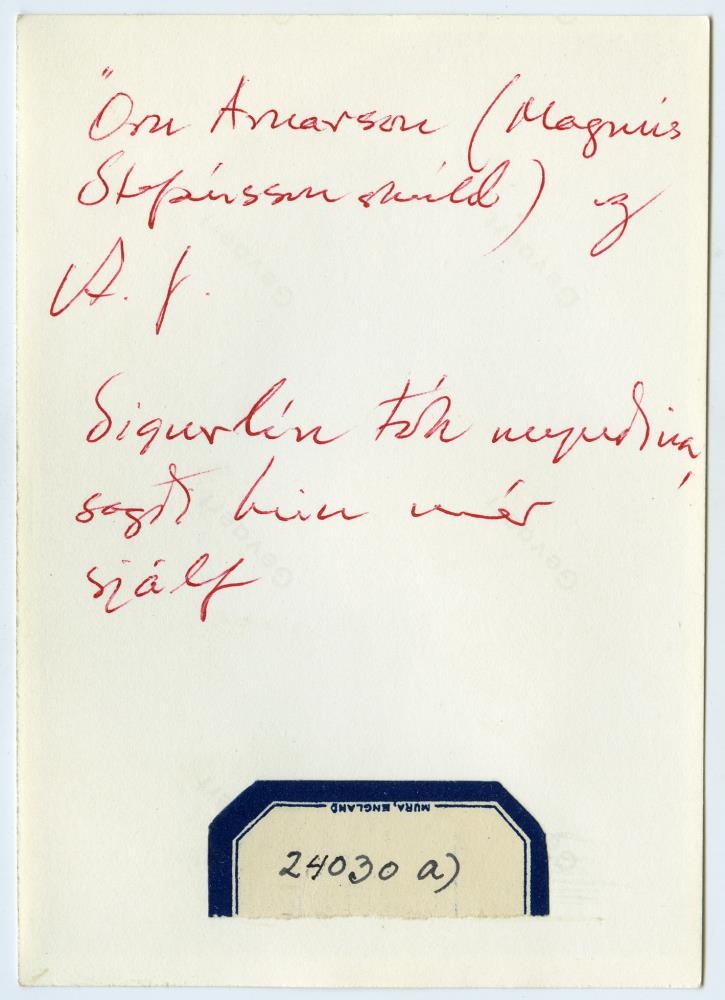 Örn Arnarson (Magnús
Stefánsson skáld) og
A. J.
Sigurlín tók myndina,
sagði hún mér
sjálf
MURA, ENGLAND
24030 a)
Gevaert
Gevaert
Gevaert